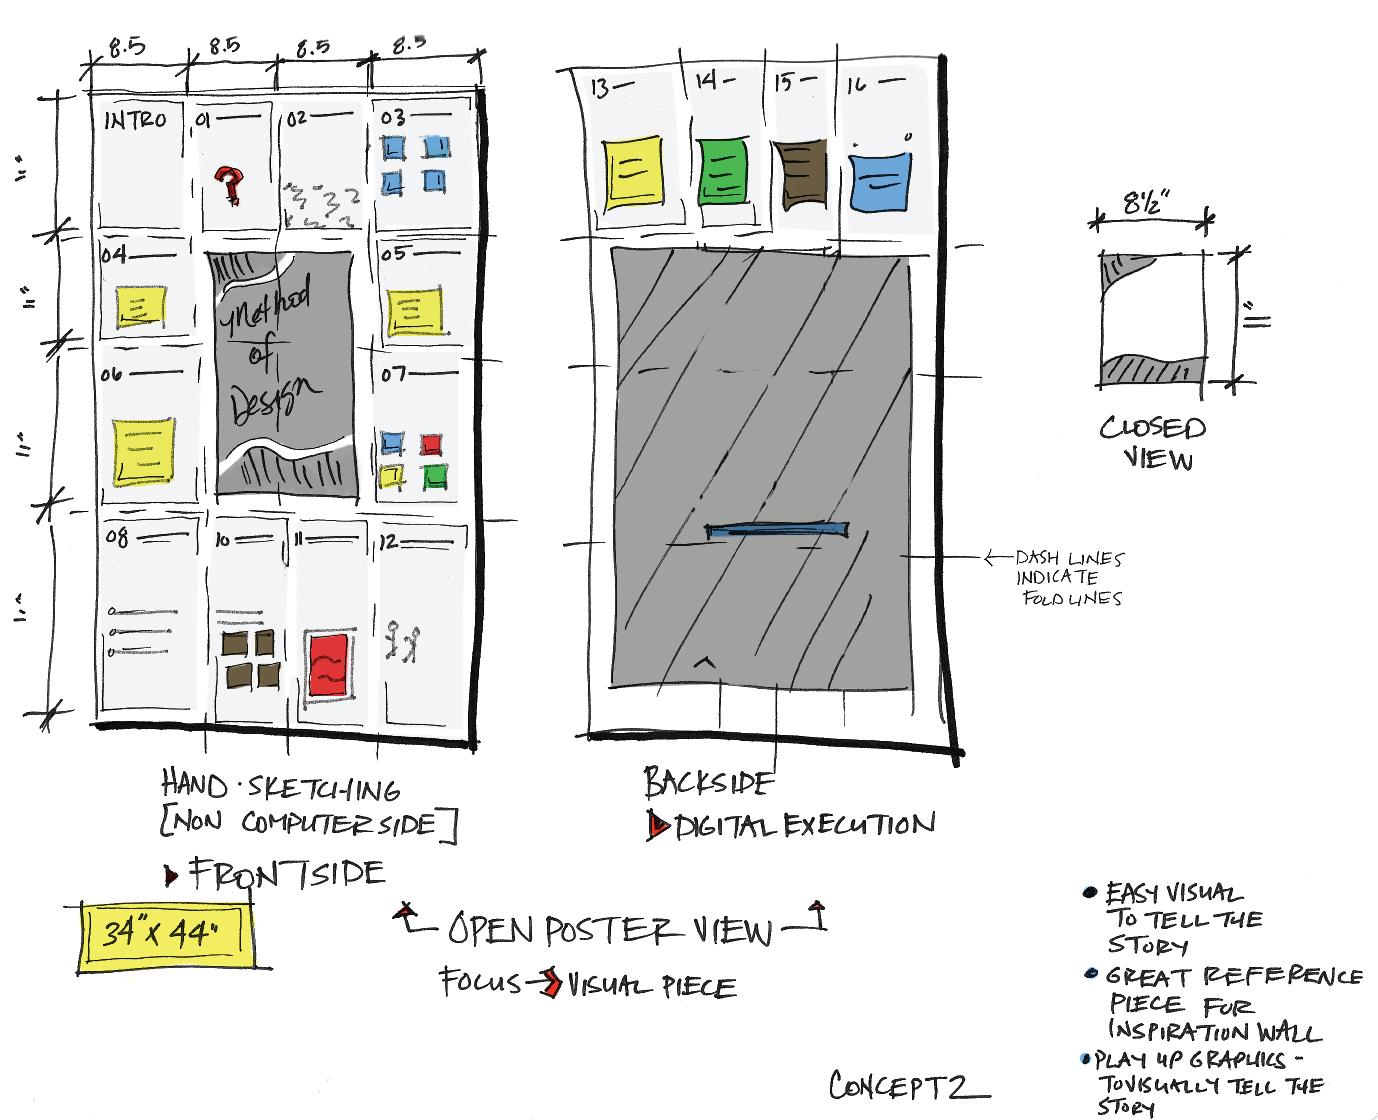 8.5 8.5 8.5 8.5
11"
11"
11"
11"
INTRO
01
02
03
04
05
06
07
08
10
11
12
Method
of
Design
13
14
15
16
8½"
11"
CLOSED
VIEW
DASH LINES
INDICATE
FOLD LINES
HAND·SKETCHING
[NON COMPUTER SIDE]
FRONTSIDE
34" X 44"
BACKSIDE
DIGITAL EXECUTION
OPEN POSTER VIEW
FOCUS → VISUAL PIECE
• EASY VISUAL
TO TELL THE
STORY
• GREAT REFERENCE
PIECE FOR
INSPIRATION WALL
• PLAY UP GRAPHICS -
TO VISUALLY TELL THE
STORY
CONCEPT 2